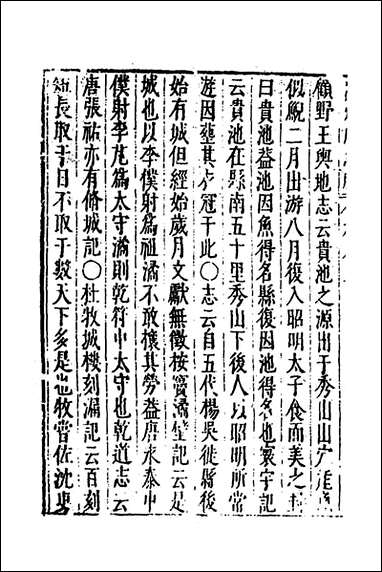 顧野王輿地志云貴池之源出于秀山山有
似鯢二月出游八月復入昭明太子食而美之
曰貴池益池因魚得名縣復因池得名也寰宇記
云貴池在縣南五十里秀山下後人以昭明所常
遊因塟其衣冠于此〇志云自五代楊吳徙縣後
始有城但經始歲月文獻無徵按竇潏壁記云是
城也以李僕射爲祖潏不敢攘其勞益唐永泰中
僕射李凢爲太守潏則乾符中太守也乾道志云
唐張祐亦有脩城記〇杜牧城樓刻漏記云百刻
短長取于日不取于數天下多是也牧嘗佐沈吏